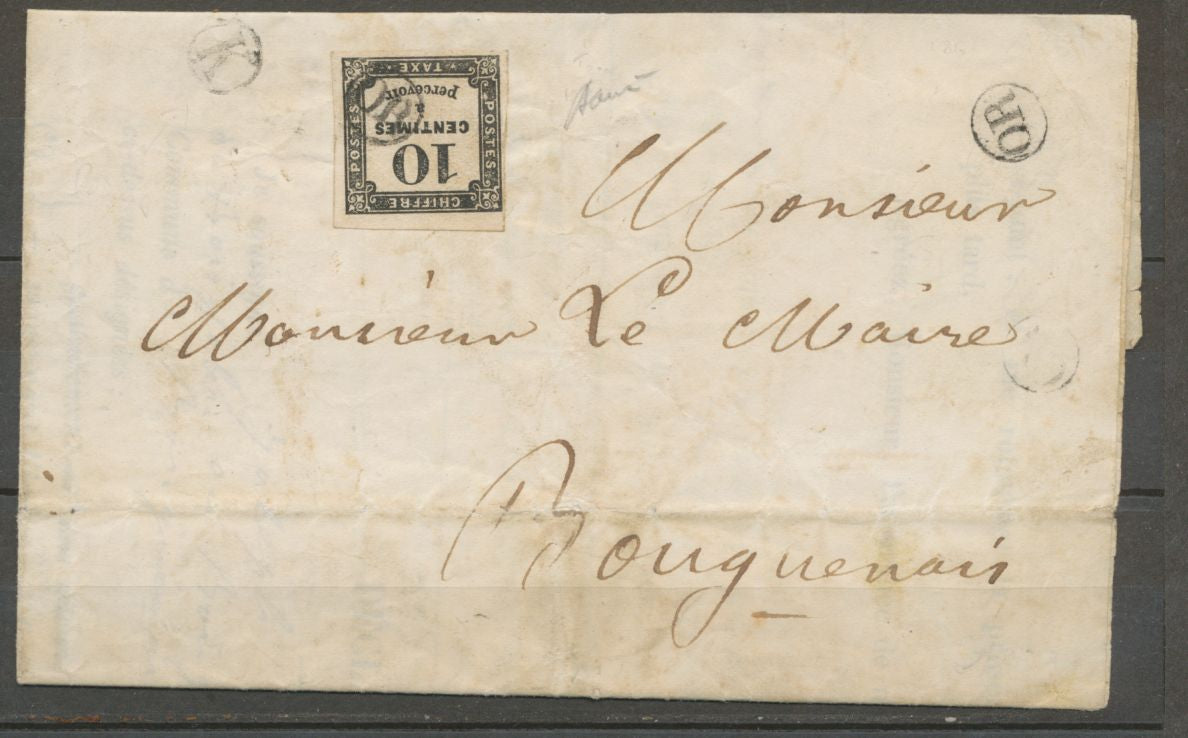 K
CHIFFRE
POSTES
POSTES
TAXE
10
CENTIMES
à
percevoir
OR
OR
Monsieur
Monsieur Le Maire
Bouguenais